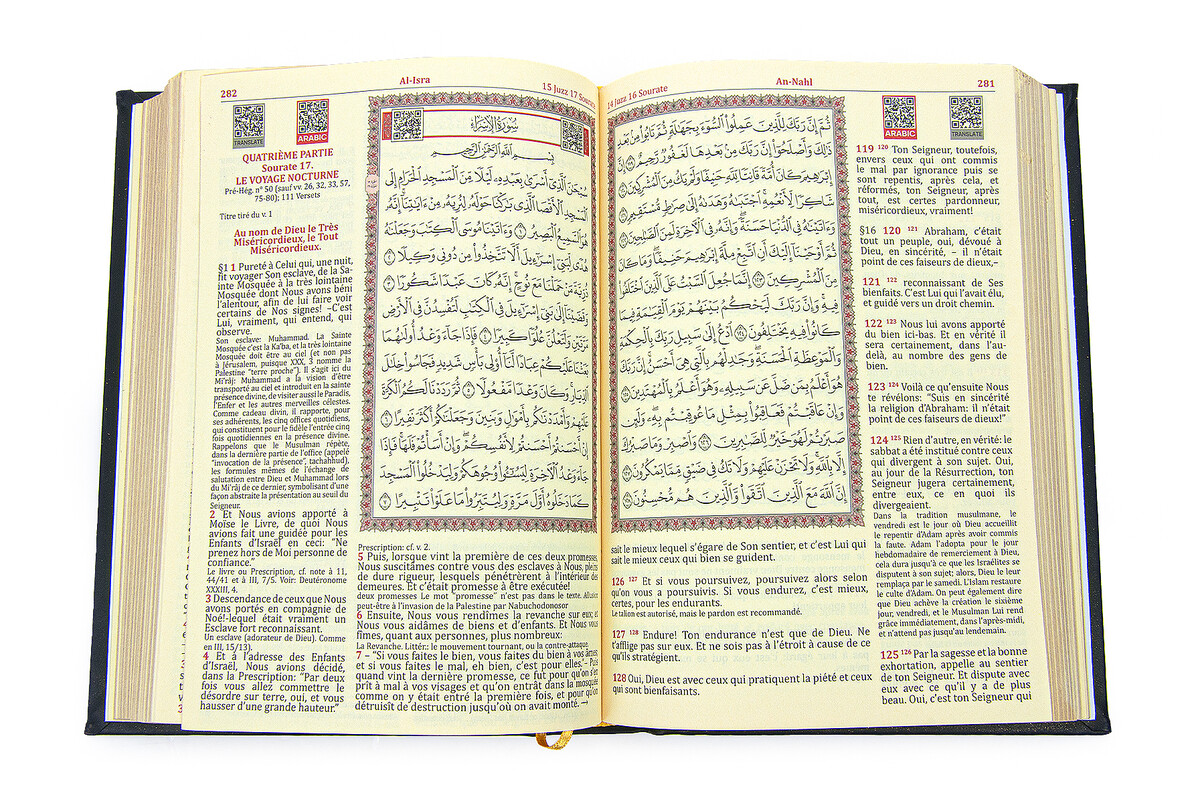 An-Nahl
281
14 Juzz 16 Sourate
ARABIC
TRANSLATE
ثُمَّ إِنَّ رَبَّكَ لِلَّذِينَ عَمِلُوا۟ ٱلسُّوٓءَ بِجَهَٰلَةٍ ثُمَّ تَابُوا۟ مِنۢ بَعْدِ
ذَٰلِكَ وَأَصْلَحُوٓا۟ إِنَّ رَبَّكَ مِنۢ بَعْدِهَا لَغَفُورٌ رَّحِيمٌ ١١٩ إِنَّ
إِبْرَٰهِيمَ كَانَ أُمَّةً قَانِتًا لِّلَّهِ حَنِيفًا وَلَمْ يَكُ مِنَ ٱلْمُشْرِكِينَ ١٢٠
شَاكِرًا لِّأَنْعُمِهِ ٱجْتَبَىٰهُ وَهَدَىٰهُ إِلَىٰ صِرَٰطٍ مُّسْتَقِيمٍ ١٢١
وَءَاتَيْنَٰهُ فِى ٱلدُّنْيَا حَسَنَةً وَإِنَّهُ فِى ٱلْءَاخِرَةِ لَمِنَ ٱلصَّٰلِحِينَ ١٢٢
ثُمَّ أَوْحَيْنَآ إِلَيْكَ أَنِ ٱتَّبِعْ مِلَّةَ إِبْرَٰهِيمَ حَنِيفًا وَمَا كَانَ
مِنَ ٱلْمُشْرِكِينَ ١٢٣ إِنَّمَا جُعِلَ ٱلسَّبْتُ عَلَى ٱلَّذِينَ ٱخْتَلَفُوا۟
فِيهِ وَإِنَّ رَبَّكَ لَيَحْكُمُ بَيْنَهُمْ يَوْمَ ٱلْقِيَٰمَةِ فِيمَا
كَانُوا۟ فِيهِ يَخْتَلِفُونَ ١٢٤ ٱدْعُ إِلَىٰ سَبِيلِ رَبِّكَ بِٱلْحِكْمَةِ
وَٱلْمَوْعِظَةِ ٱلْحَسَنَةِ وَجَٰدِلْهُم بِٱلَّتِى هِىَ أَحْسَنُ إِنَّ رَبَّكَ
هُوَ أَعْلَمُ بِمَن ضَلَّ عَن سَبِيلِهِ وَهُوَ أَعْلَمُ بِٱلْمُهْتَدِينَ ١٢٥
وَإِنْ عَاقَبْتُمْ فَعَاقِبُوا۟ بِمِثْلِ مَا عُوقِبْتُم بِهِ وَلَئِن
صَبَرْتُمْ لَهُوَ خَيْرٌ لِّلصَّٰبِرِينَ ١٢٦ وَٱصْبِرْ وَمَا صَبْرُكَ
إِلَّا بِٱللَّهِ وَلَا تَحْزَنْ عَلَيْهِمْ وَلَا تَكُ فِى ضَيْقٍ مِّمَّا يَمْكُرُونَ ١٢٧
إِنَّ ٱللَّهَ مَعَ ٱلَّذِينَ ٱتَّقَوا۟ وَّٱلَّذِينَ هُم مُّحْسِنُونَ ١٢٨
119 120 Ton Seigneur, toutefois,
envers ceux qui ont commis
le mal par ignorance puis se
sont repentis, après cela, et
réformés, ton Seigneur, après
tout, est certes pardonneur,
miséricordieux, vraiment!
§16 120 121 Abraham, c'était
tout un peuple, oui, dévoué à
Dieu, en sincérité, – il n'était
point de ces faiseurs de dieux,–
121 122 reconnaissant de Ses
bienfaits. C'est Lui qui l'avait élu,
et guidé vers un droit chemin.
122 123 Nous lui avons apporté
du bien ici-bas. Et en vérité il
sera certainement, dans l'au-
delà, au nombre des gens de
bien.
123 124 Voilà ce qu'ensuite Nous
te révélons: "Suis en sincérité
la religion d'Abraham: il n'était
point de ces faiseurs de dieux!"
124 125 Rien d'autre, en vérité: le
sabbat a été institué contre ceux
qui divergent à son sujet. Oui,
au jour de la Résurrection, ton
Seigneur jugera certainement,
entre eux, ce en quoi ils
divergeaient.
Dans la tradition musulmane, le
vendredi est le jour où Dieu accueillit
le repentir d'Adam après avoir commis
la faute. Adam l'adopta pour le jour
hebdomadaire de remerciement à Dieu,
cela dura jusqu'à ce que les Israélites se
disputent à son sujet; alors, Dieu le leur
remplaça par le samedi. L'Islam restaure
le culte d'Adam. On peut également dire
que Dieu achève la création le sixième
jour, vendredi, et le Musulman Lui rend
grâce immédiatement, dans l'après-midi,
et n'attend pas jusqu'au lendemain.
125 126 Par la sagesse et la bonne
exhortation, appelle au sentier
de ton Seigneur. Et dispute avec
eux avec ce qu'il y a de plus
beau. Oui, c'est ton Seigneur qui
sait le mieux lequel s'égare de Son sentier, et c'est Lui qui
sait le mieux ceux qui bien se guident.
126 127 Et si vous poursuivez, poursuivez alors selon
qu'on vous a poursuivis. Si vous endurez, c'est mieux,
certes, pour les endurants.
Le talion est autorisé, mais le pardon est recommandé.
127 128 Endure! Ton endurance n'est que de Dieu. Ne
t'afflige pas sur eux. Et ne sois pas à l'étroit à cause de ce
qu'ils stratégient.
128 Oui, Dieu est avec ceux qui pratiquent la piété et ceux
qui sont bienfaisants.
282
Al-Isra
15 Juzz 17 Sourate
TRANSLATE
ARABIC
QUATRIÈME PARTIE
Sourate 17.
LE VOYAGE NOCTURNE
Pré-Hég. n° 50 (sauf vv. 26, 32, 33, 57,
75-80); 111 Versets
Titre tiré du v. 1
Au nom de Dieu le Très
Miséricordieux, le Tout
Miséricordieux.
§1 1 Pureté à Celui qui, une nuit,
fit voyager Son esclave, de la Sa-
inte Mosquée à la très lointaine
Mosquée dont Nous avons béni
l'alentour, afin de lui faire voir
certains de Nos signes! –C'est
Lui, vraiment, qui entend, qui
observe.
Son esclave: Muhammad. La Sainte
Mosquée c'est la Ka'ba, et la très lointaine
Mosquée doit être au ciel (et non pas
à Jérusalem, puisque XXX, 3 nomme la
Palestine "terre proche"). Il s'agit ici du
Mi'râj: Muhammad a la vision d'être
transporté au ciel et introduit en la sainte
présence divine, de visiter aussi le Paradis,
l'Enfer et les autres merveilles célestes.
Comme cadeau divin, il rapporte, pour
ses adhérents, les cinq offices quotidiens,
qui constituent pour le fidèle l'entrée cinq
fois quotidiennes en la présence divine.
Rappelons que le Musulman répète,
dans la dernière partie de l'office (appelé
"invocation de la présence", tachahhud),
les formules mêmes de l'échange de
salutation entre Dieu et Muhammad lors
du Mi'râj de ce dernier, symbolisant d'une
façon abstraite la présentation au seuil du
Seigneur.
2 Et Nous avions apporté à
Moïse le Livre, de quoi Nous
avions fait une guidée pour les
Enfants d'Israël en ceci: "Ne
prenez hors de Moi personne de
confiance."
Le livre ou Prescription, cf. note à 11,
44/41 et à III, 7/5. Voir: Deutéronome
XXXIII, 4.
3 Descendance de ceux que Nous
avons portés en compagnie de
Noé!-lequel était vraiment un
Esclave fort reconnaissant.
Un esclave (adorateur de Dieu). Comme
en III, 15/13).
4 Et à l'adresse des Enfants
d'Israël, Nous avions décidé,
dans la Prescription: "Par deux
fois vous allez commettre le
désordre sur terre, oui, et vous
hausser d'une grande hauteur."
سُورَةُ الْإِسْرَاءِ
بِسْمِ ٱللَّهِ ٱلرَّحْمَٰنِ ٱلرَّحِيمِ
سُبْحَٰنَ ٱلَّذِىٓ أَسْرَىٰ بِعَبْدِهِ لَيْلًا مِّنَ ٱلْمَسْجِدِ ٱلْحَرَامِ إِلَى
ٱلْمَسْجِدِ ٱلْأَقْصَا ٱلَّذِى بَٰرَكْنَا حَوْلَهُ لِنُرِيَهُ مِنْ ءَايَٰتِنَآ إِنَّهُ
هُوَ ٱلسَّمِيعُ ٱلْبَصِيرُ ١ وَءَاتَيْنَا مُوسَى ٱلْكِتَٰبَ وَجَعَلْنَٰهُ
هُدًى لِّبَنِىٓ إِسْرَٰٓءِيلَ أَلَّا تَتَّخِذُوا۟ مِن دُونِى وَكِيلًا ٢
ذُرِّيَّةَ مَنْ حَمَلْنَا مَعَ نُوحٍ إِنَّهُ كَانَ عَبْدًا شَكُورًا ٣
وَقَضَيْنَآ إِلَىٰ بَنِىٓ إِسْرَٰٓءِيلَ فِى ٱلْكِتَٰبِ لَتُفْسِدُنَّ فِى ٱلْأَرْضِ
مَرَّتَيْنِ وَلَتَعْلُنَّ عُلُوًّا كَبِيرًا ٤ فَإِذَا جَآءَ وَعْدُ أُولَىٰهُمَا
بَعَثْنَا عَلَيْكُمْ عِبَادًا لَّنَآ أُو۟لِى بَأْسٍ شَدِيدٍ فَجَاسُوا۟ خِلَٰلَ
ٱلدِّيَارِ وَكَانَ وَعْدًا مَّفْعُولًا ٥ ثُمَّ رَدَدْنَا لَكُمُ ٱلْكَرَّةَ
عَلَيْهِمْ وَأَمْدَدْنَٰكُم بِأَمْوَٰلٍ وَبَنِينَ وَجَعَلْنَٰكُمْ أَكْثَرَ نَفِيرًا ٦
إِنْ أَحْسَنتُمْ أَحْسَنتُمْ لِأَنفُسِكُمْ وَإِنْ أَسَأْتُمْ فَلَهَا فَإِذَا
جَآءَ وَعْدُ ٱلْءَاخِرَةِ لِيَسُۥٓـُٔوا۟ وُجُوهَكُمْ وَلِيَدْخُلُوا۟ ٱلْمَسْجِدَ
كَمَا دَخَلُوهُ أَوَّلَ مَرَّةٍ وَلِيُتَبِّرُوا۟ مَا عَلَوْا۟ تَتْبِيرًا ٧
Prescription: cf. v. 2.
5 Puis, lorsque vint la première de ces deux promesses,
Nous suscitâmes contre vous des esclaves à Nous, pleins
de dure rigueur, lesquels pénétrèrent à l'intérieur des
demeures. Et c'était promesse à être exécutée!
deux promesses Le mot "promesse" n'est pas dans le texte. Allusion
peut-être à l'invasion de la Palestine par Nabuchodonosor
6 Ensuite, Nous vous rendîmes la revanche sur eux; et
Nous vous aidâmes de biens et d'enfants. Et Nous vous
fîmes, quant aux personnes, plus nombreux:
La Revanche. Littér.: le mouvement tournant, ou la contre-attaque.
7 – "Si vous faites le bien, vous faites du bien à vos âmes
et si vous faites le mal, eh bien, c'est pour elles.'– Puis
quand vint la dernière promesse, ce fut pour qu'on s'en
prît à mal à vos visages et qu'on entrât dans la mosquée
comme on y était entré la première fois, et pour qu'on
détruisît de destruction jusqu'où on avait monté. –